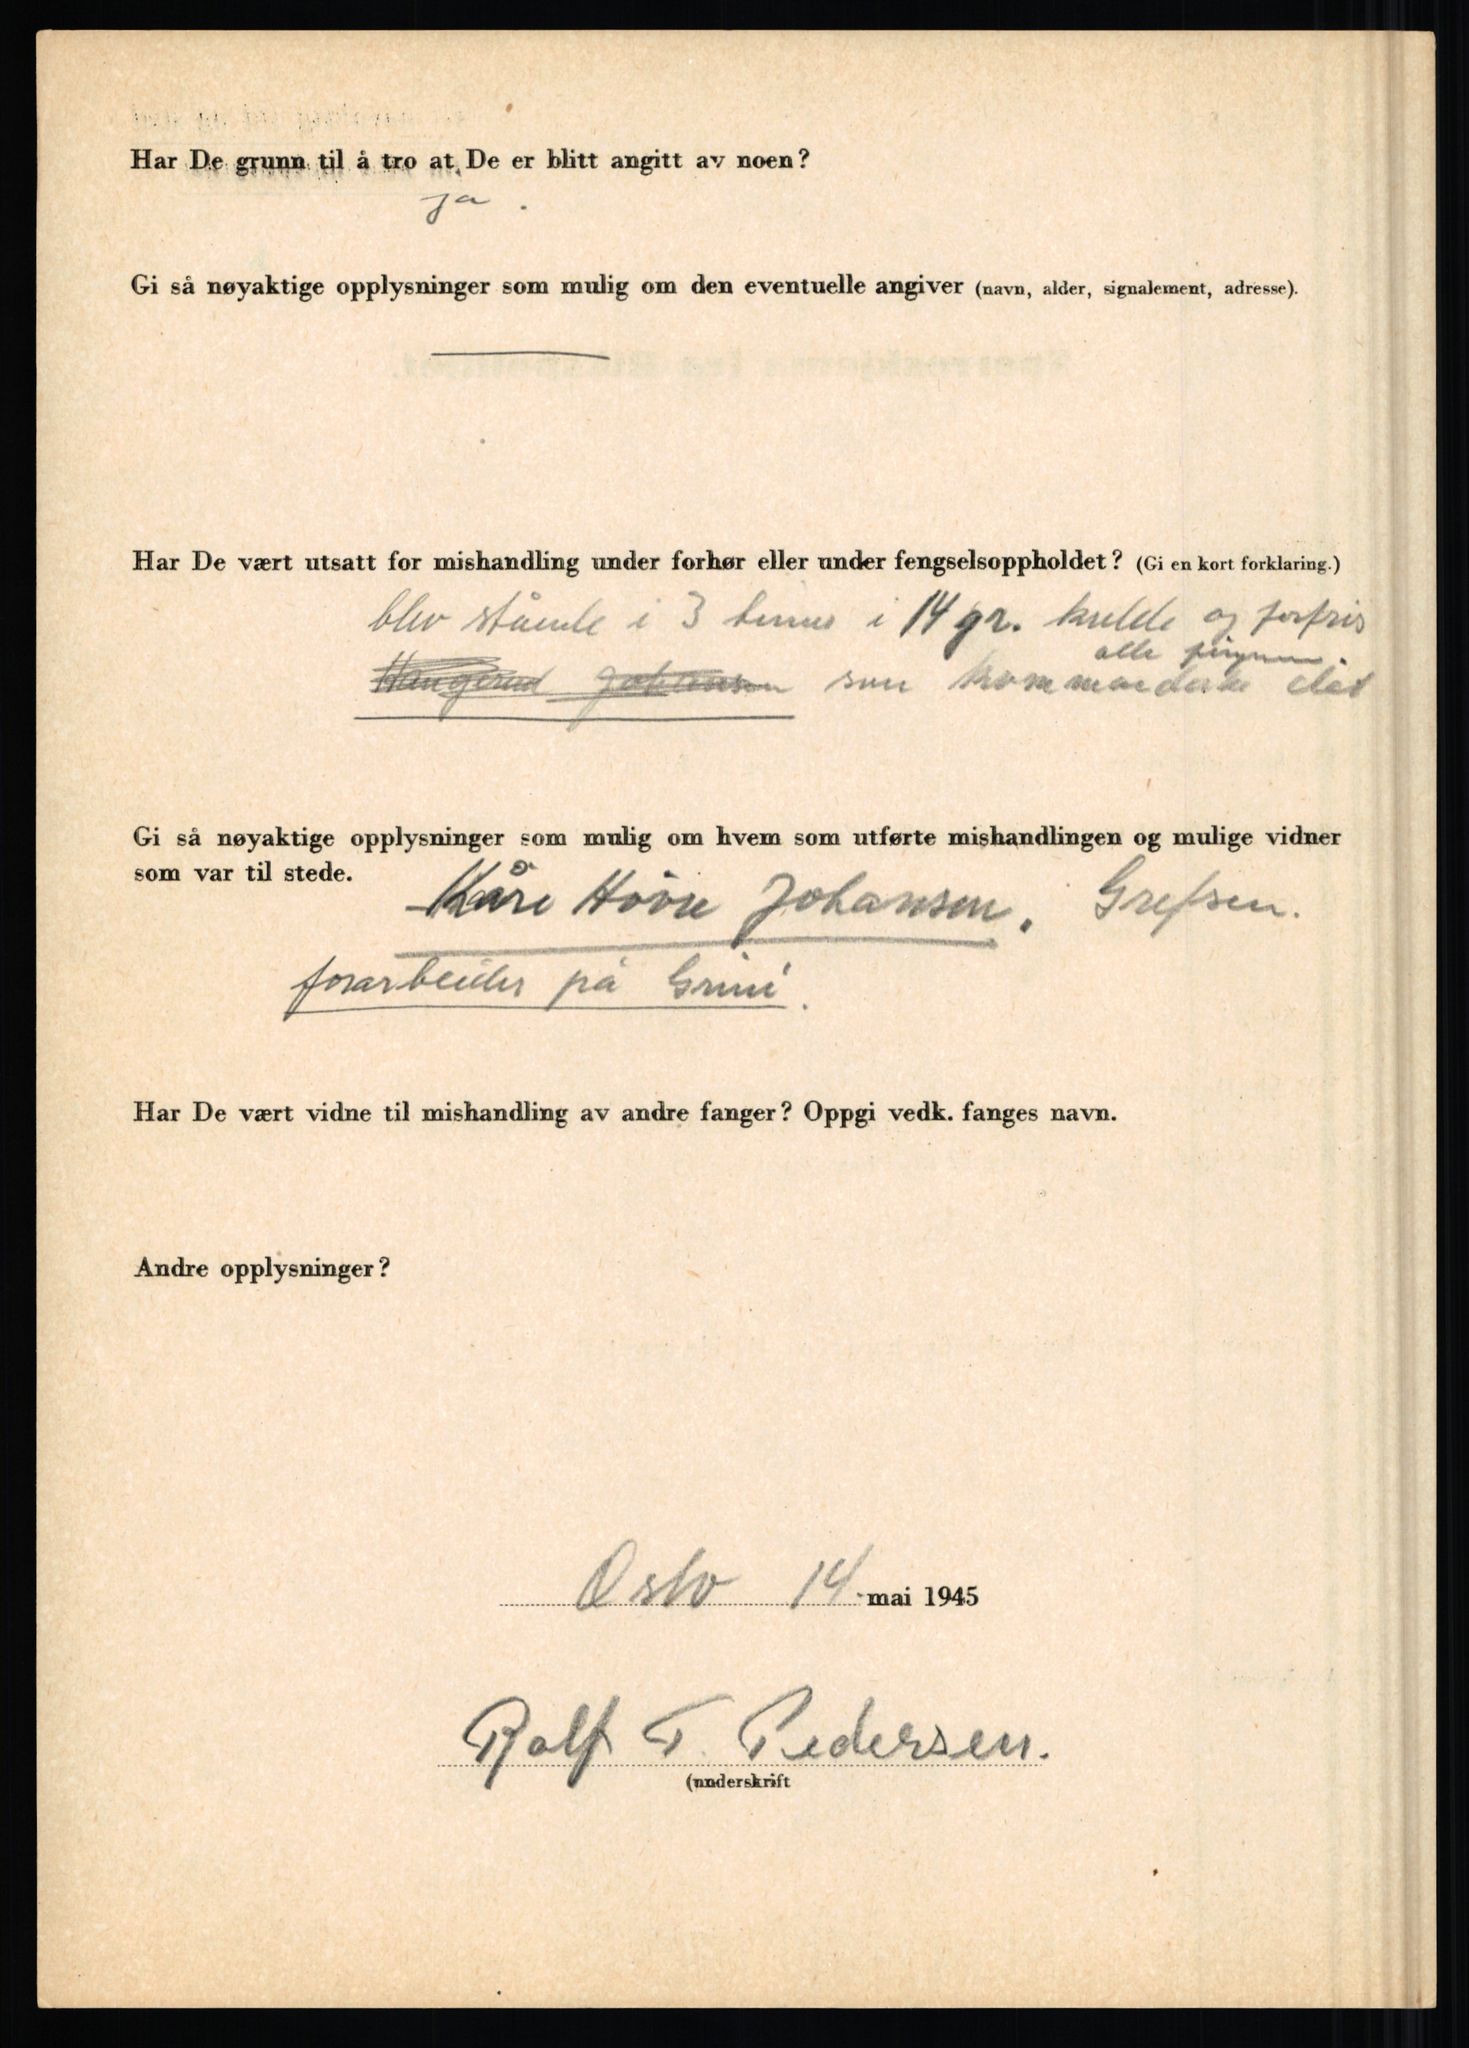 Har De grunn til å tro at De er blitt angitt av noen?
ja.
Gi så nøyaktige opplysninger som mulig om den eventuelle angiver (navn, alder, signalement, adresse).
Har De vært utsatt for mishandling under forhør eller under fengselsoppholdet? (Gi en kort forklaring.)
blev stående i 3 timer i 14 gr. kulde og forfris
alle
Haugerud Johansen som kommanderte det
Gi så nøyaktige opplysninger som mulig om hvem som utførte mishandlingen og mulige vidner
som var til stede.
Kåre Hovde Johansen. Grefsen.
forarbeider på Grini.
Har De vært vidne til mishandling av andre fanger? Oppgi vedk. fanges navn.
Andre opplysninger?
Oslo 14 mai 1945
Rolf T. Pedersen.
(underskrift